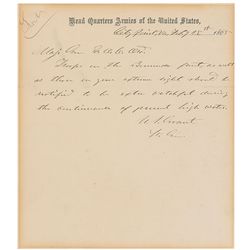 Head Quarters Armies of the United States,
City Point, Va. Feby 18th 1865
Maj. Gen.
Troops on the Bermuda front as well
as those on your extreme right should be
notified to be extra watchful during
the continuance of present high water.
U. S. Grant
Lt. Gen.